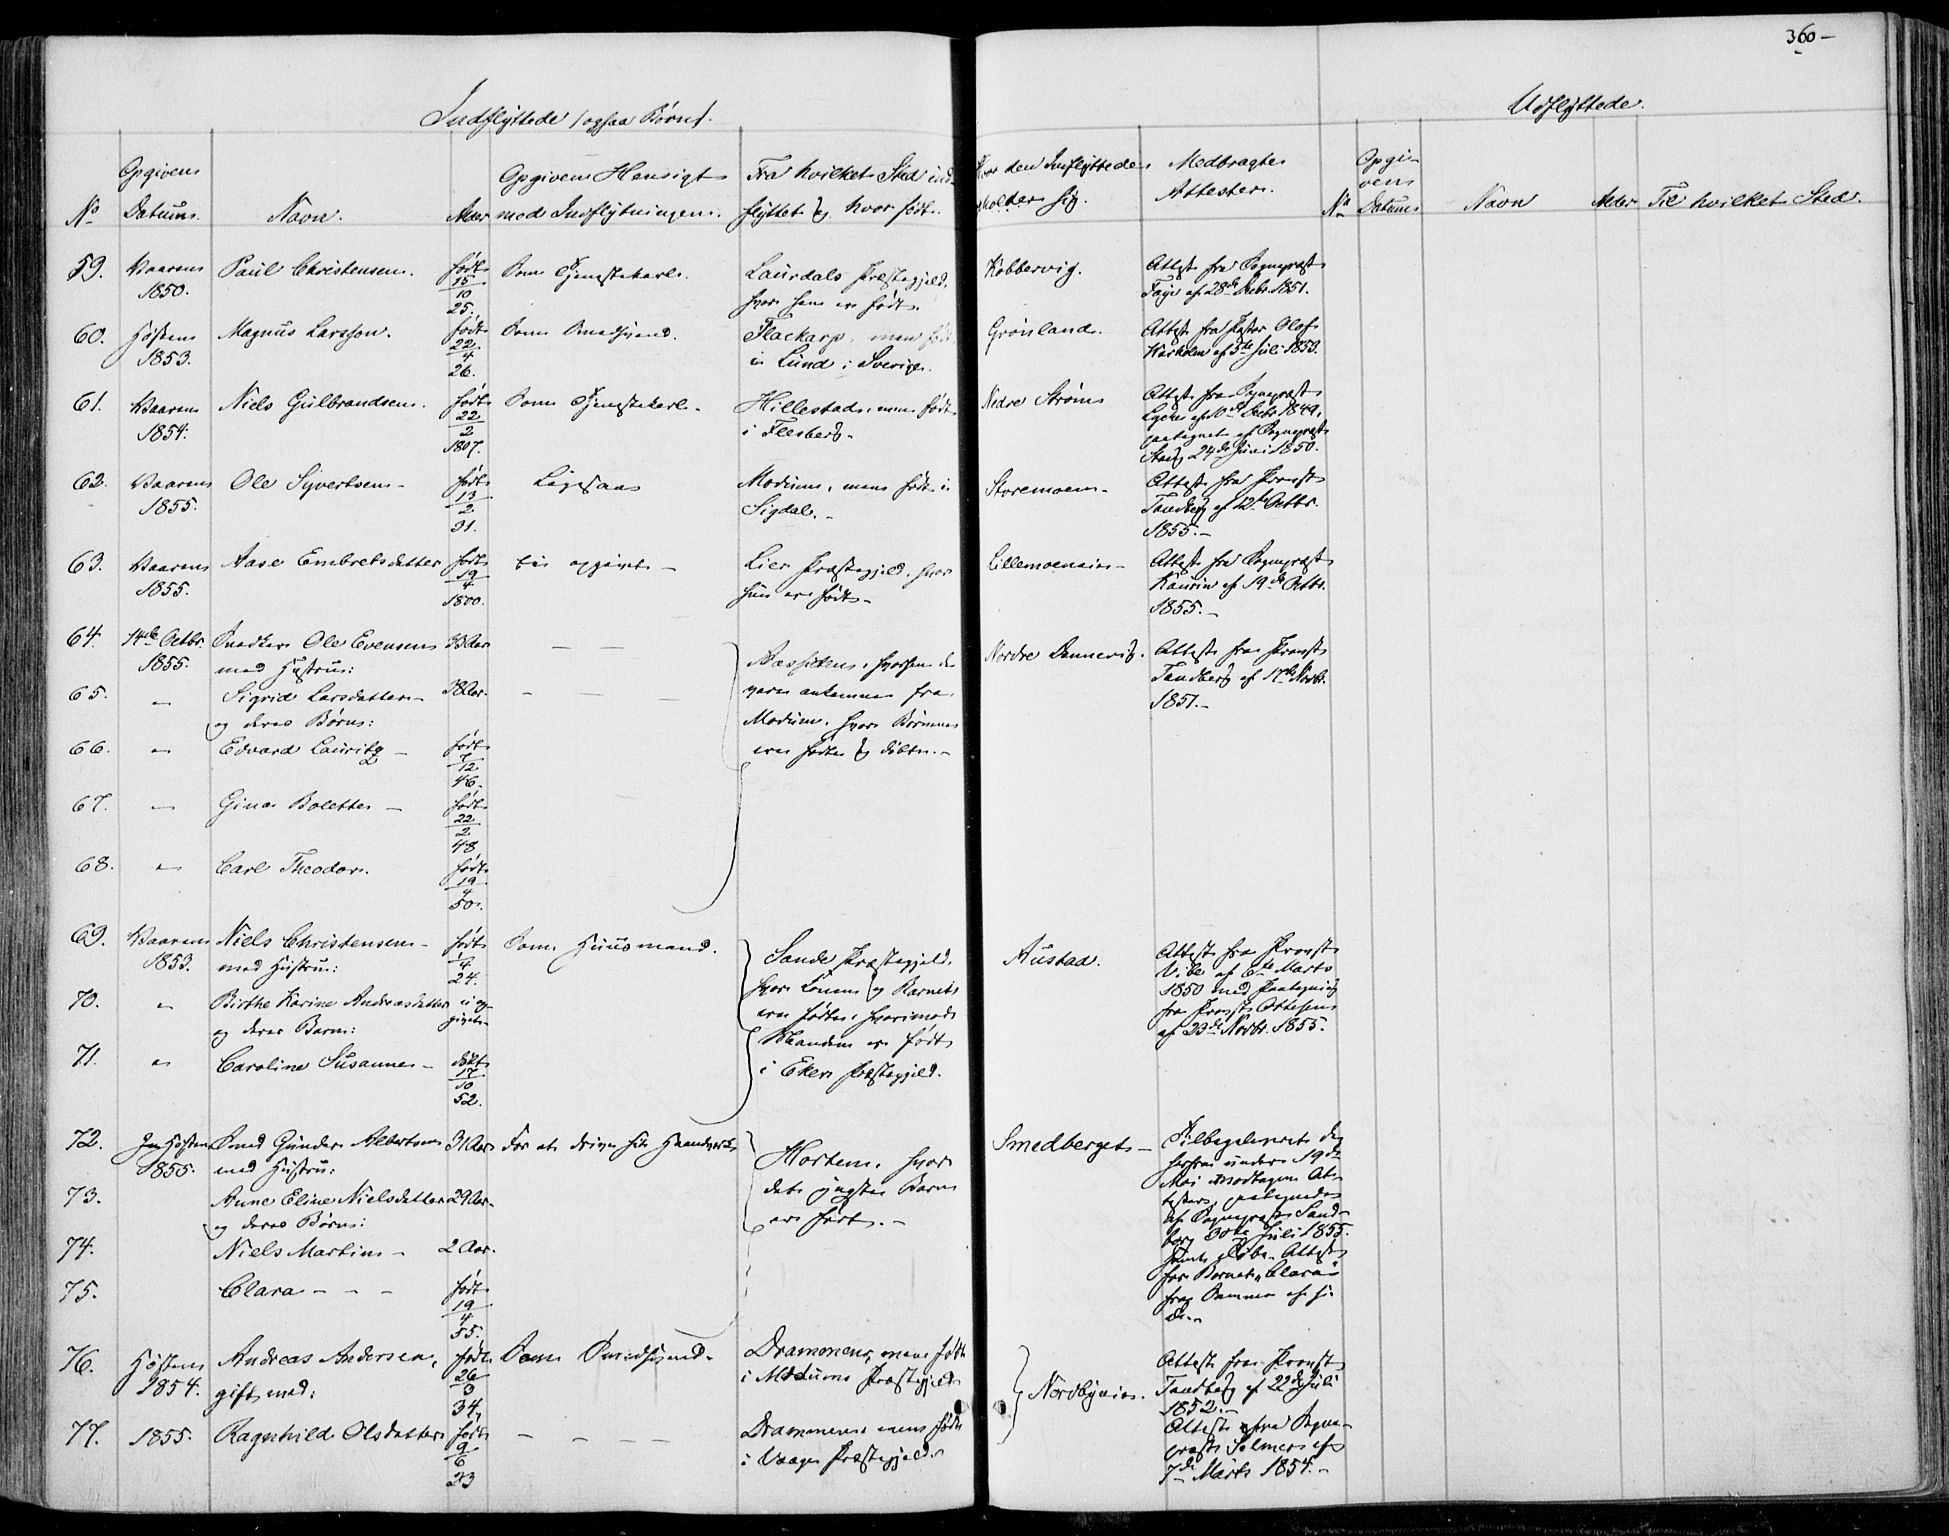 360 –
Indflyttede / ogsaa Børn /.
Udflyttede.
No
Opgivens Datum.
Navn.
Alder
Opgivens Hensigt med Indflytningen.
Fra hvilket Sted ind-
flyttet og hvor født.
Hvor den Indflyttede
opholder sig.
Medbragte
Attester.
No
Opgi-
vens
Datum
Navn
Alder
Til hvilket Sted.
59. Vaaren Paul Christensen. født Som Tjenestekarl. Laurdals Præstegjeld, Kobbervig. Attest fra Sognepræst
1850. 15/10 25. hvor han er født. Faye af 28de Decbr. 1851.
60. Høsten Magnus Larsson. født Som Smedsvend. Flackarp, men født Grønland. Attest fra Pastor Olof
1853. 22/4 26. i Lund i Sverige. af 5te Juli 1853.
61. Vaaren Niels Gulbrandsen. født Som Tjenestekarl. Hillestad, men født Nedre Strøm Attest fra Sognepræst
1854. 22/2 1807. i Flesberg. af 10de Octbr. 1849,
paategnet af Sognepræst
24de Juni 1850.
62. Vaaren Ole Syvertsen – født Ligesaa Modum, men født i Storemoen – Attest fra Provst
1855. 13/2 31. Sigdal. – Tandberg af 12te Octbr.
1855. –
63. Vaaren Aase Embretsdatter født ei opgivet – Lier Præstegjeld, hvor Lillemoeneie – Attest fra Sognepræst
1855. 19/4 1800. hun er født – Kaurin af 19de Octbr.
1855. –
64. 14de Octbr. Snedker Ole Evensen 33 Aar – – Aassiden, hvorhen de Nordre Dannevig. Attest fra Provst
1855. med Hustru: vare ankomne fra Tandberg af 17de Novbr.
65. " Sigrid Larsdatter – 38 Aar. – – – Modum, hvor Børnene 1851. –
og deres Børn: ere fødte og døbte. –
66. " Edvard Lauritz – født 7/12 46.
67. " Gina Bolette – født 22/2 48
68. " Carl Theodor. født 19/4 50.
69. Vaaren Niels Christensen – født Som Huusmand. Sande Præstegjeld, Austad. Attest fra Provst
1853. med Hustru: 1/4 24. hvor Konen og Barnet Vibe af 6te Marts
70. " Birthe Karine Andreasdatter ei op- ere fødte, hvorimod 1850 med Paategning
og deres Barn: givet. Manden er født fra Provst Ottesen
71. " Caroline Susanne – født i Eker Præstegjeld. af 23de Novbr. 1855.
17/10 52.
72. Høsten Smed Gunder Albertsen 31 Aar For at drive sit Haandverk Horten, hvor Smedberget – Tilbageleveret de
1855. med Hustru: det yngste Barn herfra under 19de
73. Anne Eline Nielsdatter 29 Aar. er født. – Mai modtagne At-
og deres Børn: tester, paategnede
74. Niels Martin – 2 Aar. af Sognepræst Sand-
berg 30te Juli 1855.
75. Clara – – – født Attest
19/4 55. for Barnet "Clara"
fra Samme af
76. Høsten Andreas Andersen, født Som Smedsvend. Drammen, men født Nordbyeie. Attest fra Provst
1854. gift med: 26/3 34, i Modums Præstegjeld Tandberg af 22de Juli
1852. –
77. 1855. Ragnhild Olsdatter født – – – – Drammen, men født Attest fra Sogne-
9/6 23 i Vaage Præstegjeld. præst Selmer af
7de Marts 1854. –